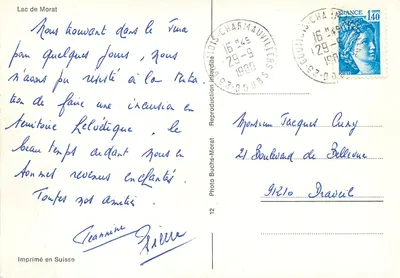 Lac de Morat
Nous trouvant dans le Jura
pour quelques jours, nous
n'avons pu résister à la tenta
tion de faire une incursion en
territoire Helvétique, le
beau temps aidant nous en
sommes revenus enchantés.
Toutes nos amitiés.
Jeannine
Pierre
Imprimé en Suisse
12 Photo Buche-Morat Reproduction interdite
GOUMOIS-CHARMAUVILLERS
16 H45
29-9
1980
25-DOUBS
FRANCE
1,40
Monsieur Jacques Cuny
21 Boulevard de Bellevue
91210 Draveil